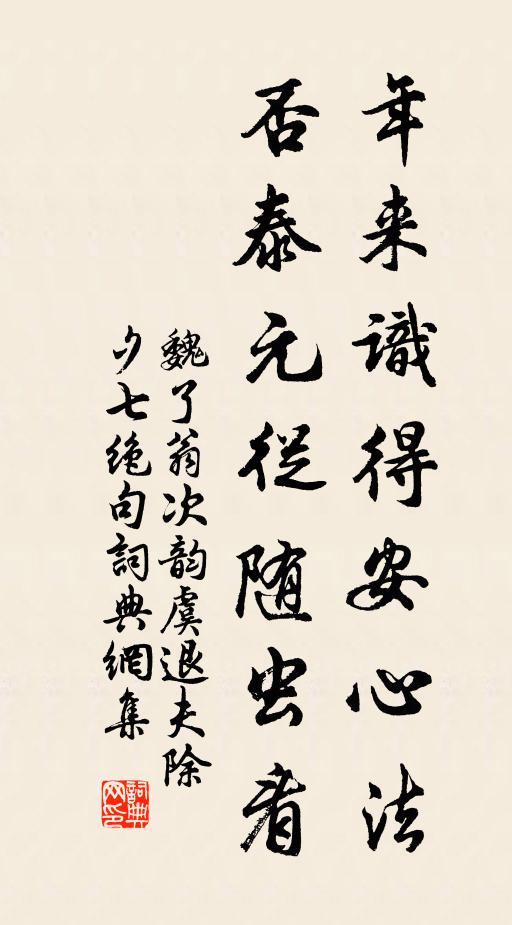 年来識得安心法
否泰元從随虫看
魏了翁次韵虞退夫除
夕七绝句詞典網集
詞典网印